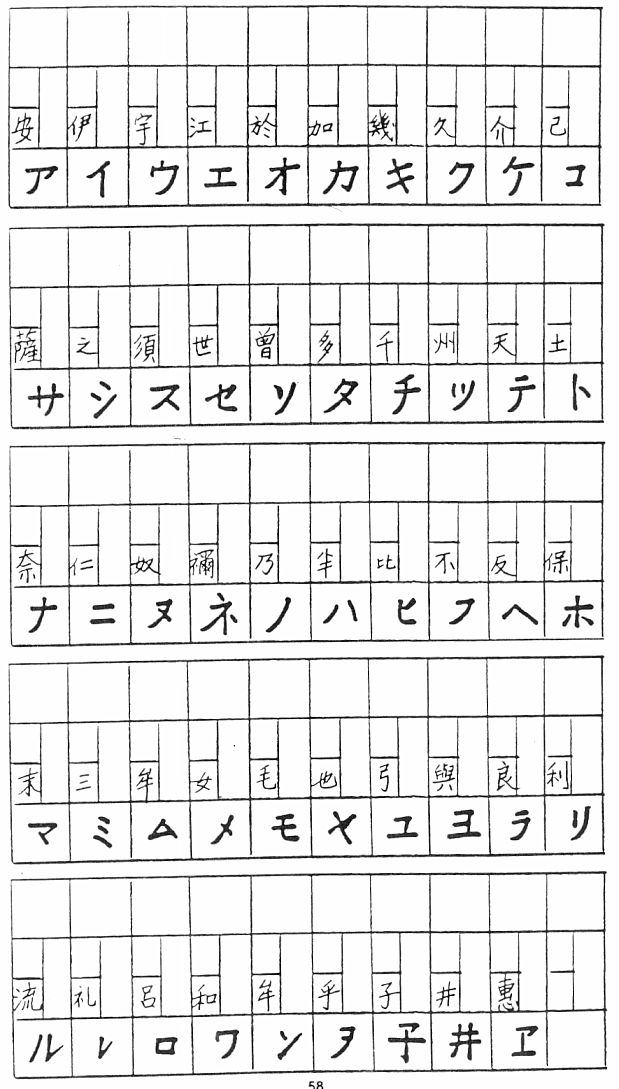 安 伊 宇 江 於 加 幾 久 介 己
ア イ ウ エ オ カ キ ク ケ コ
薩 之 須 世 曽 多 千 州 天 土
サ シ ス セ ソ タ チ ツ テ ト
奈 仁 奴 禰 乃 半 比 不 反 保
ナ ニ ヌ ネ ノ ハ ヒ フ ヘ ホ
末 三 牟 女 毛 也 弓 與 良 利
マ ミ ム メ モ ヤ ユ ヨ ラ リ
流 礼 呂 和 牟 乎 子 井 惠
ル レ ロ ワ ン ヲ 子 井 ヱ
58